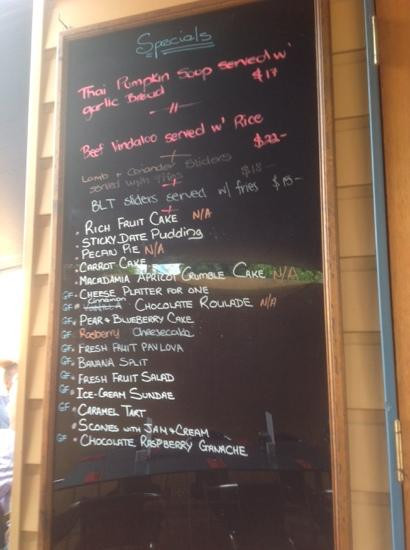 Specials
Thai Pumpkin Soup served w'
garlic Bread $17
Beef Vindaloo served w' Rice
$22-
Lamb + Coriander Sliders
served with fries $18-
BLT sliders served w/ fries $15-
RICH FRUIT CAKE N/A
STICKY DATE PUDDING
PECAN PIE N/A
CARROT CAKE
MACADAMIA APRICOT CRUMBLE CAKE N/A
GF CHEESE PLATTER FOR ONE
Cinnamon
GF CHOCOLATE ROULADE N/A
GF PEAR & BLUEBERRY CAKE
GF Raspberry Cheesecake
GF FRESH FRUIT PAVLOVA
GF BANANA SPLIT
GF FRESH FRUIT SALAD
GF ICE-CREAM SUNDAE
GF CARAMEL TART
SCONES WITH JAM & CREAM
GF CHOCOLATE RASPBERRY GANACHE